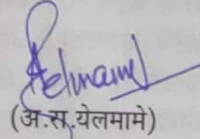 (अ.स.येलमामे)